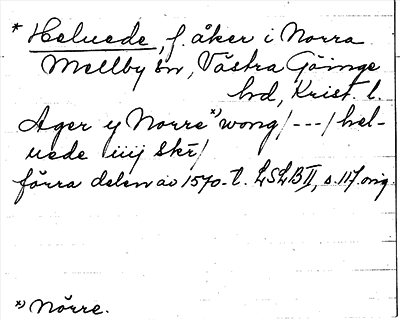 * Heluede, f. åker i Norra
Mellby sn, Västra Göinge
hd, Krist. l.
Ager y Norre *) wong/---/hel-
uede iiij Skr/
förra delen av 1570-t. LSLB II, s. 117. orig.
*) Nörre.